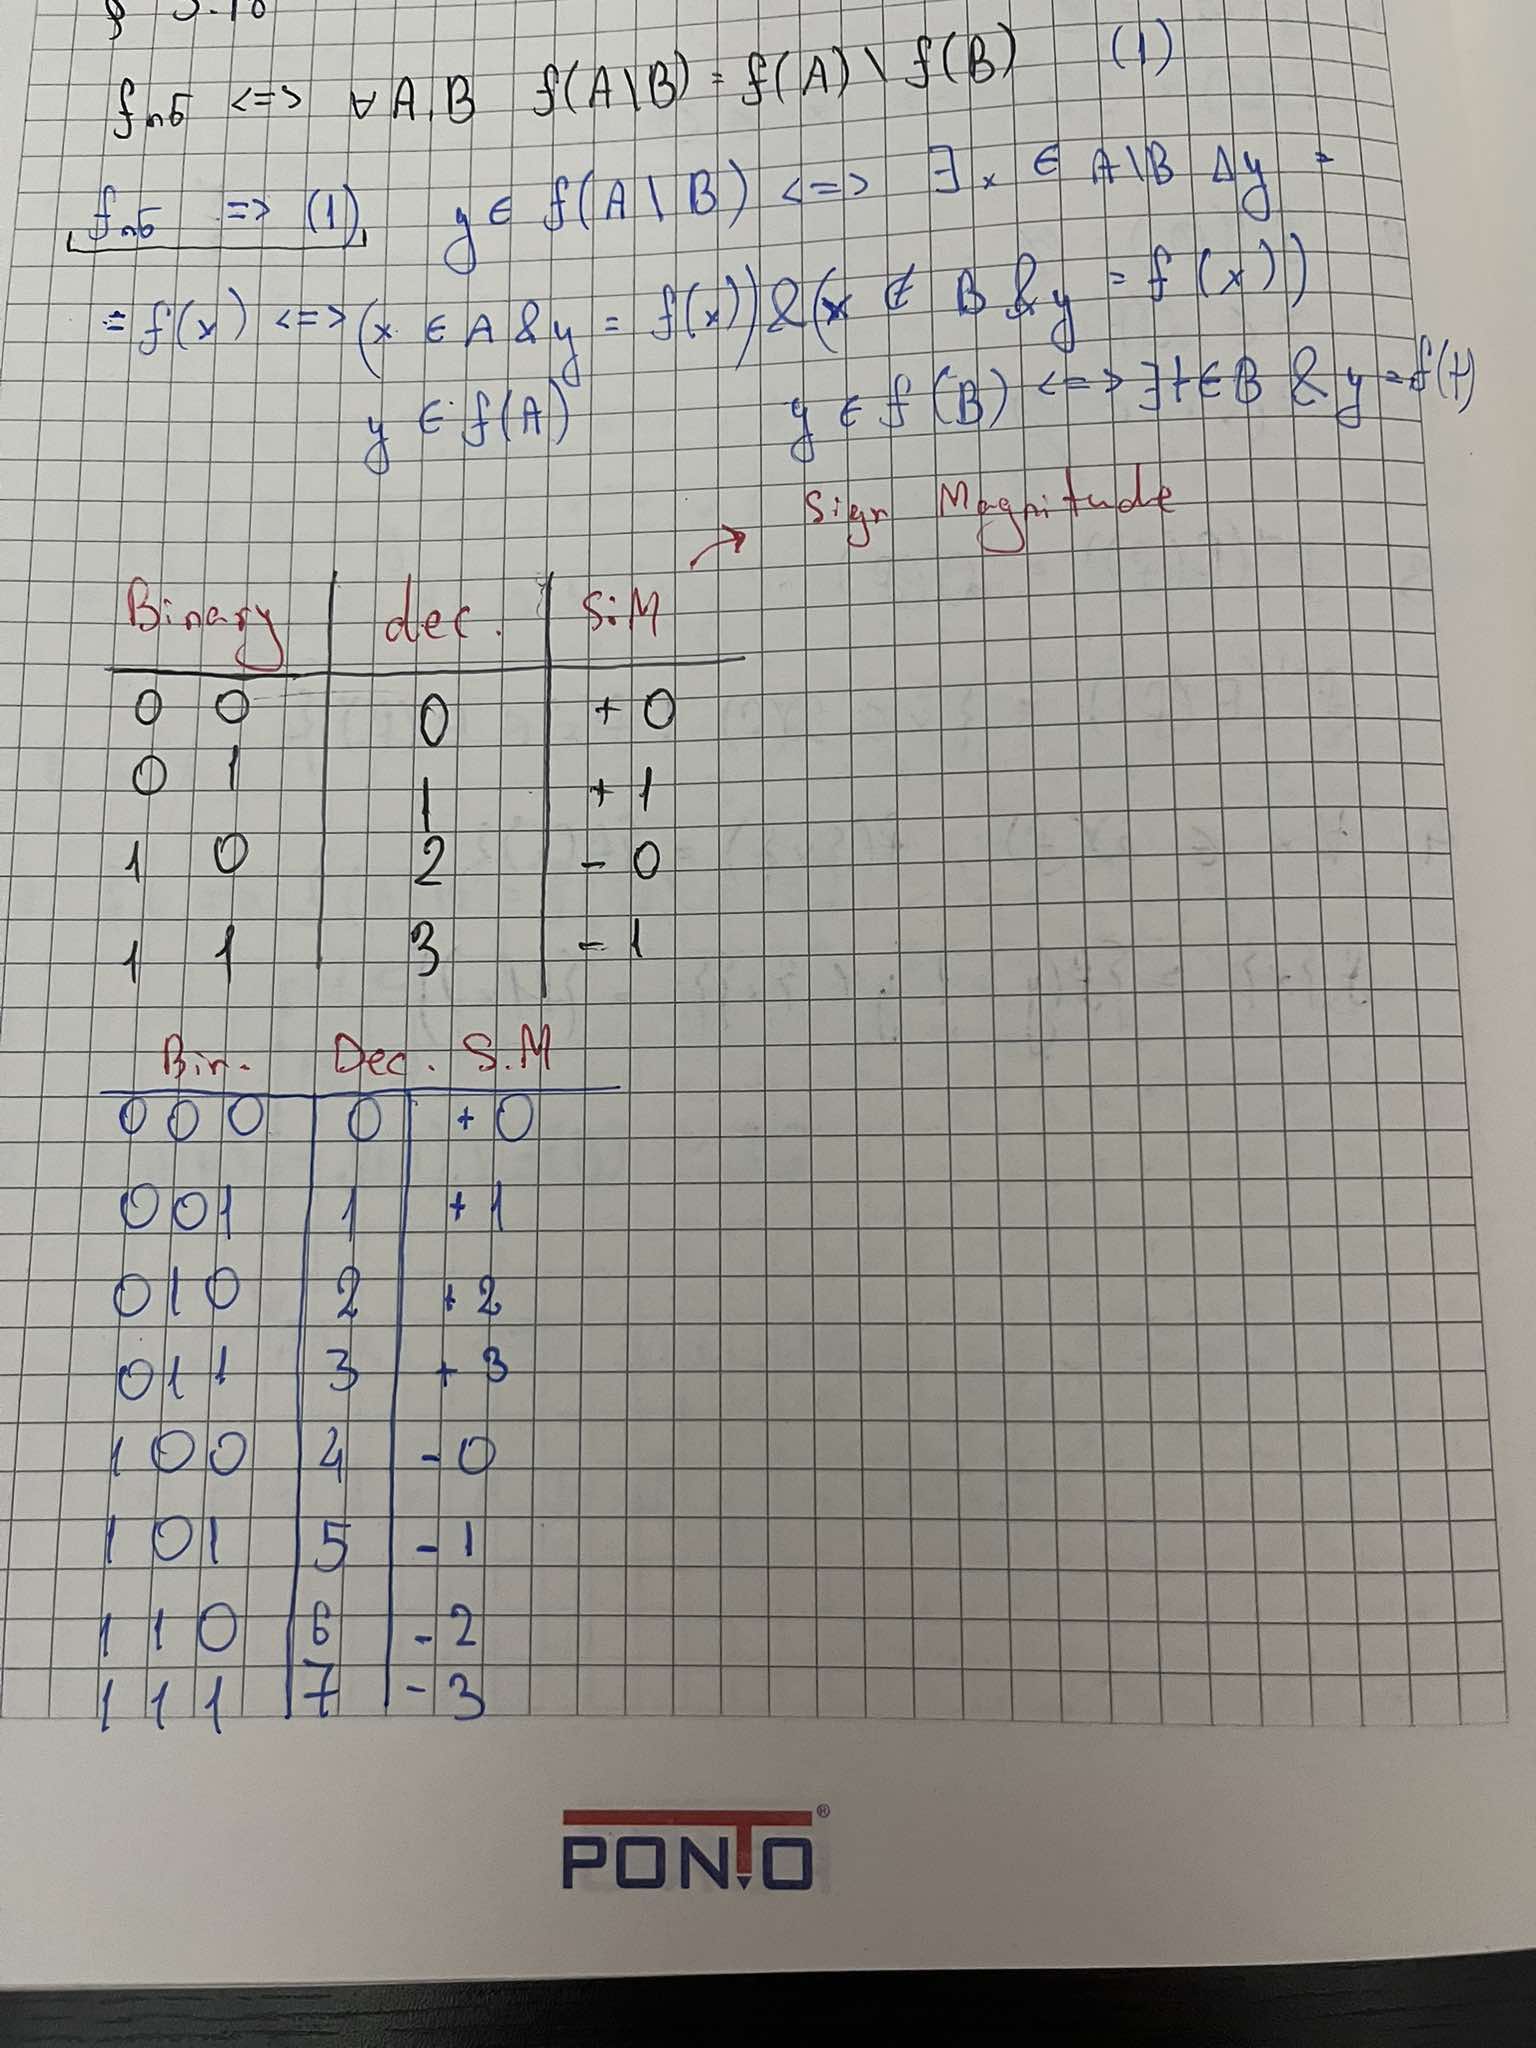 f пб <=> ∀ A, B f(A\B) = f(A) \ f(B) (1)
f пб => (1) y ∈ f(A \ B) <=> ∃ x ∈ A \ B & y =
= f(x) <=> (x ∈ A & y = f(x)) & (x ∉ B & y = f(x))
y ∈ f(A) y ∈ f(B) <=> ∃ t ∈ B & y = f(t)
Sign Magnitude
Binary dec. S.M
0 0 0 + 0
0 1 1 + 1
1 0 2 - 0
1 1 3 - 1
Bin. Dec. S.M
0 0 0 0 + 0
0 0 1 1 + 1
0 1 0 2 + 2
0 1 1 3 + 3
1 0 0 4 - 0
1 0 1 5 - 1
1 1 0 6 - 2
1 1 1 7 - 3
PONTO®